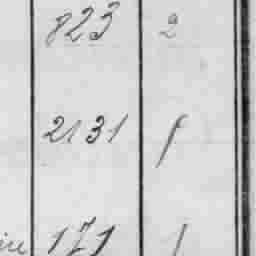 823 2
2131 1
171 1